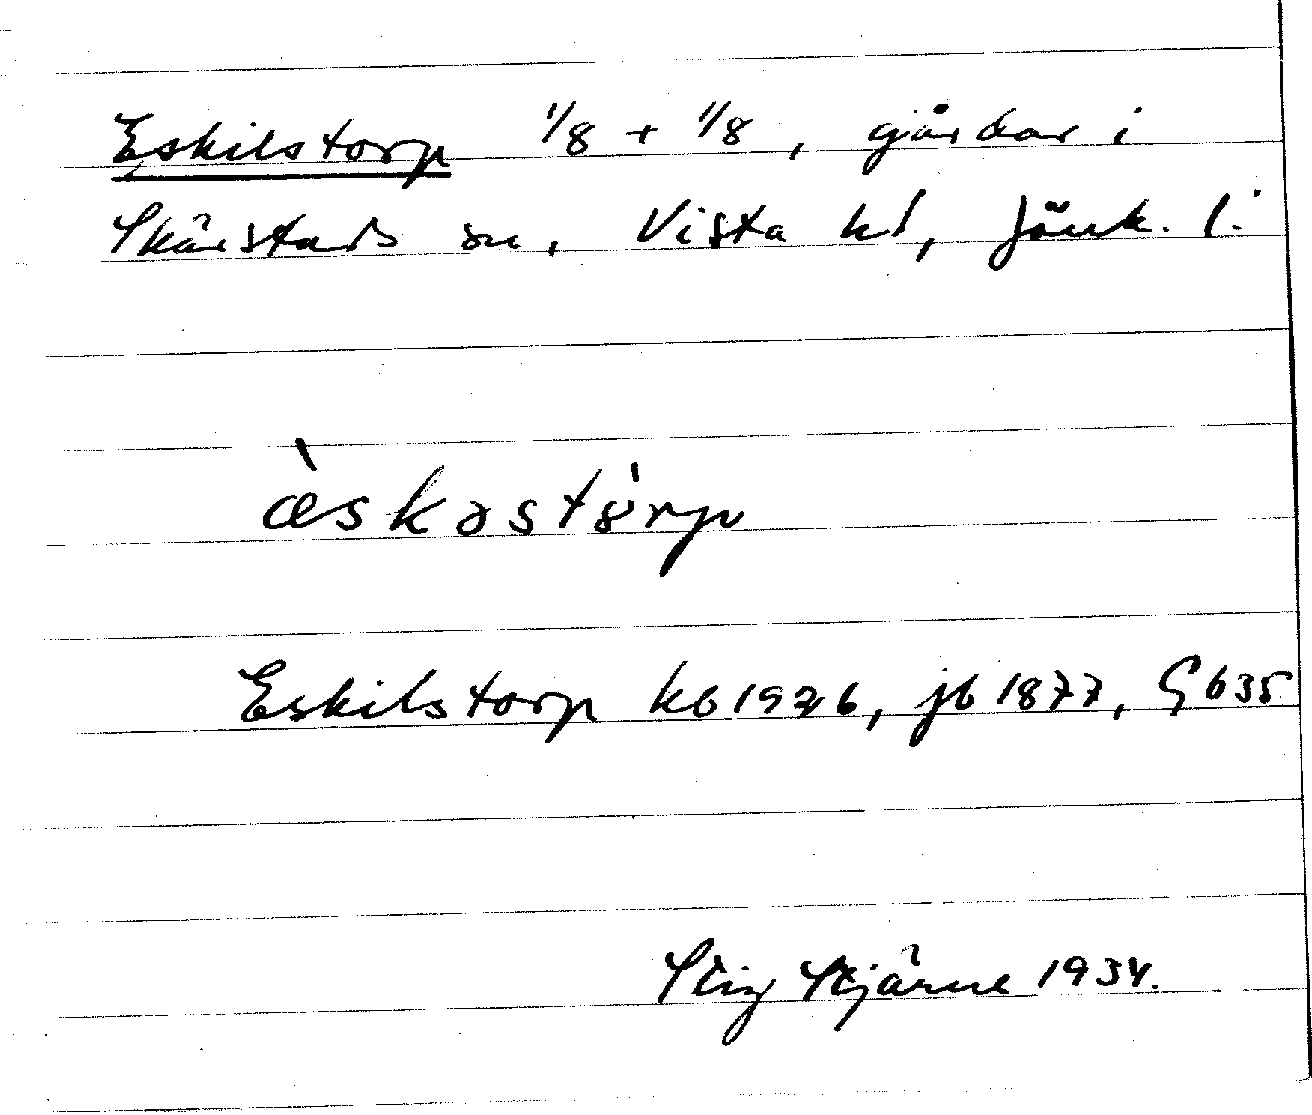 Eskilstorp 1/8 + 1/8, gårdar i
Skärstads sn, Vista hd, Jönk. l.
æ̀skəstòrp
Eskilstorp kb 1926, jb 1877, G 635
Stig Stjärne 1934.